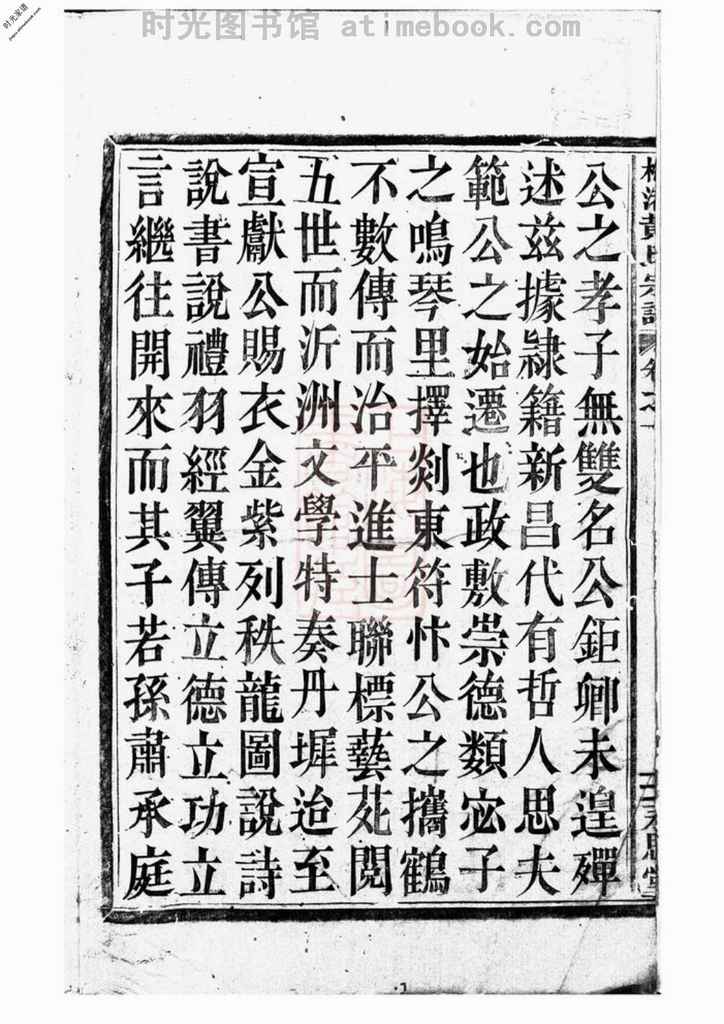 时光图书馆 atimebook.com
时光家谱
黃氏宗譜 卷之
思堂
公之孝子無雙名公鉅卿未遑殫
述茲據隷籍新昌代有哲人思夫
範公之始遷也政敷崇德類宓子
之鳴琴里擇剡東符忭公之攜鶴
不數傳而治平進士聯標藝苑閱
五世而沂洲文學特奏丹墀迨至
宣獻公賜衣金紫列秩龍圖說詩
說書說禮羽經翼傳立德立功立
言繼往開來而其子若孫肅承庭